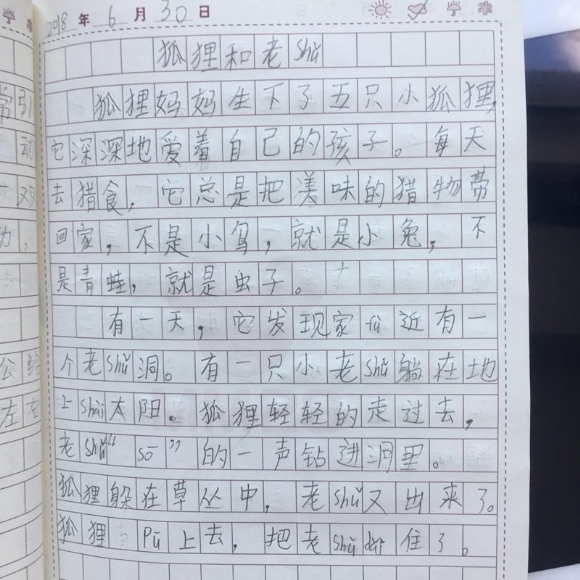 2018年6月30日
狐狸和老shǔ
狐狸妈妈生下了五只小狐狸,
它深深地爱着自己的孩子。每天
去猎食,它总是把美味的猎物带
回家,不是小鸟,就是小兔,不
是青蛙,就是虫子。
有一天,它发现家fù近有一
个老shǔ洞。有一只小老shǔ躺在地
上shài太阳。狐狸轻轻的走过去,
老shǔ“sō”的一声钻进洞里。
狐狸躲在草丛中,老shǔ又出来了。
狐狸pū上去,把老shǔ住了。